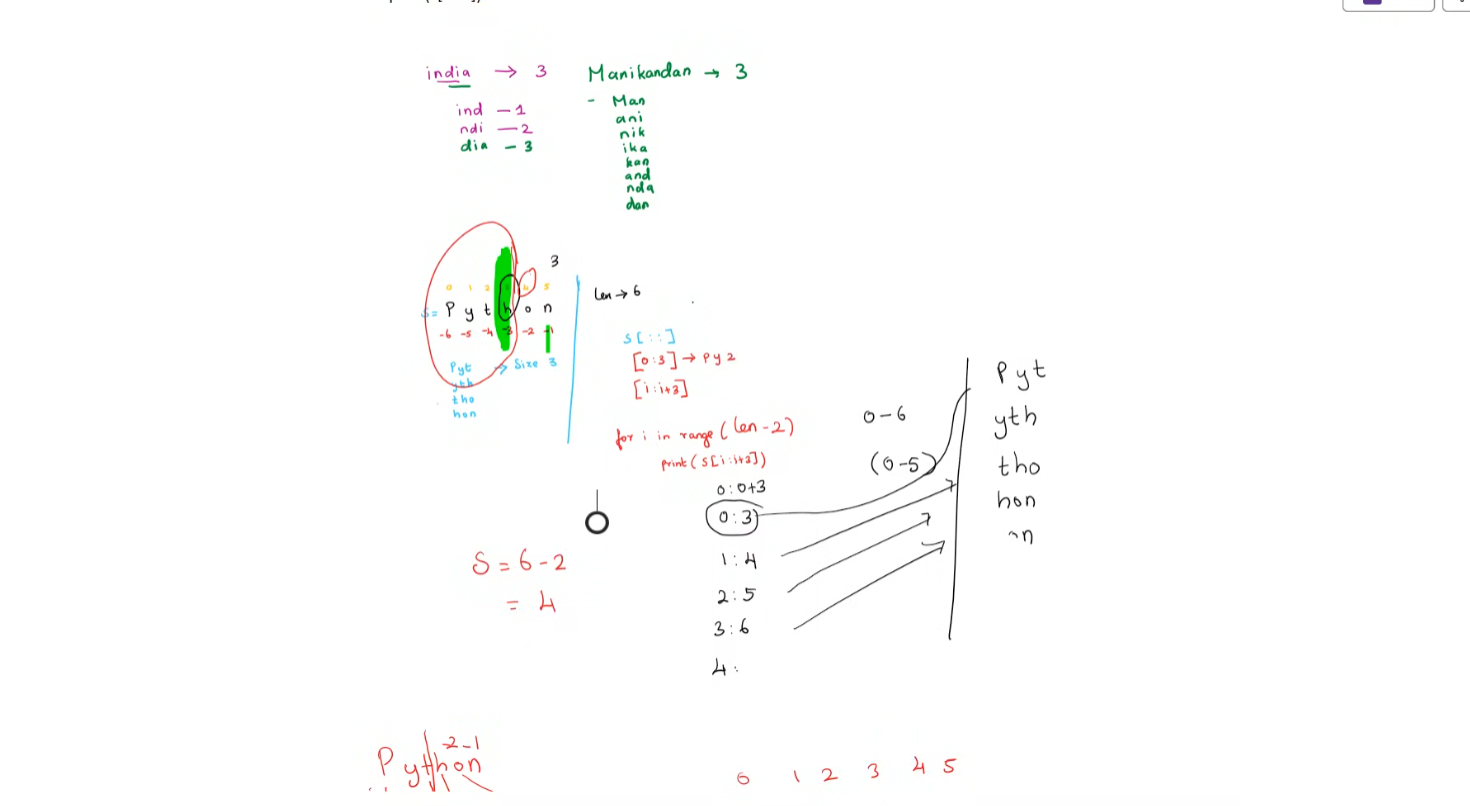 india → 3
ind - 1
ndi - 2
dia - 3
Manikandan → 3
- Man
ani
nik
ika
kan
and
nda
dan
3
0 1 2 4 5
S= P y t h o n
-6 -5 -4 -3 -2 -1
Pyt → Size 3
yth
tho
hon
Len → 6
S[::]
[0:3] → Py2
[i:i+3]
for i in range (len-2)
print(s[i:i+3])
0-6
(0-5)
0:0+3
0:3
1:4
2:5
3:6
4:
Pyt
yth
tho
hon
on
S = 6-2
= 4
-2-1
Python
1 2 3 4 5